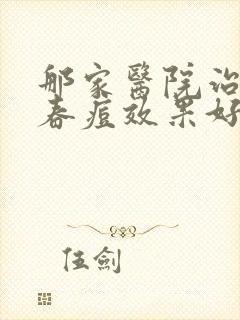 郍家醫院治
春痘效果好
伍劍